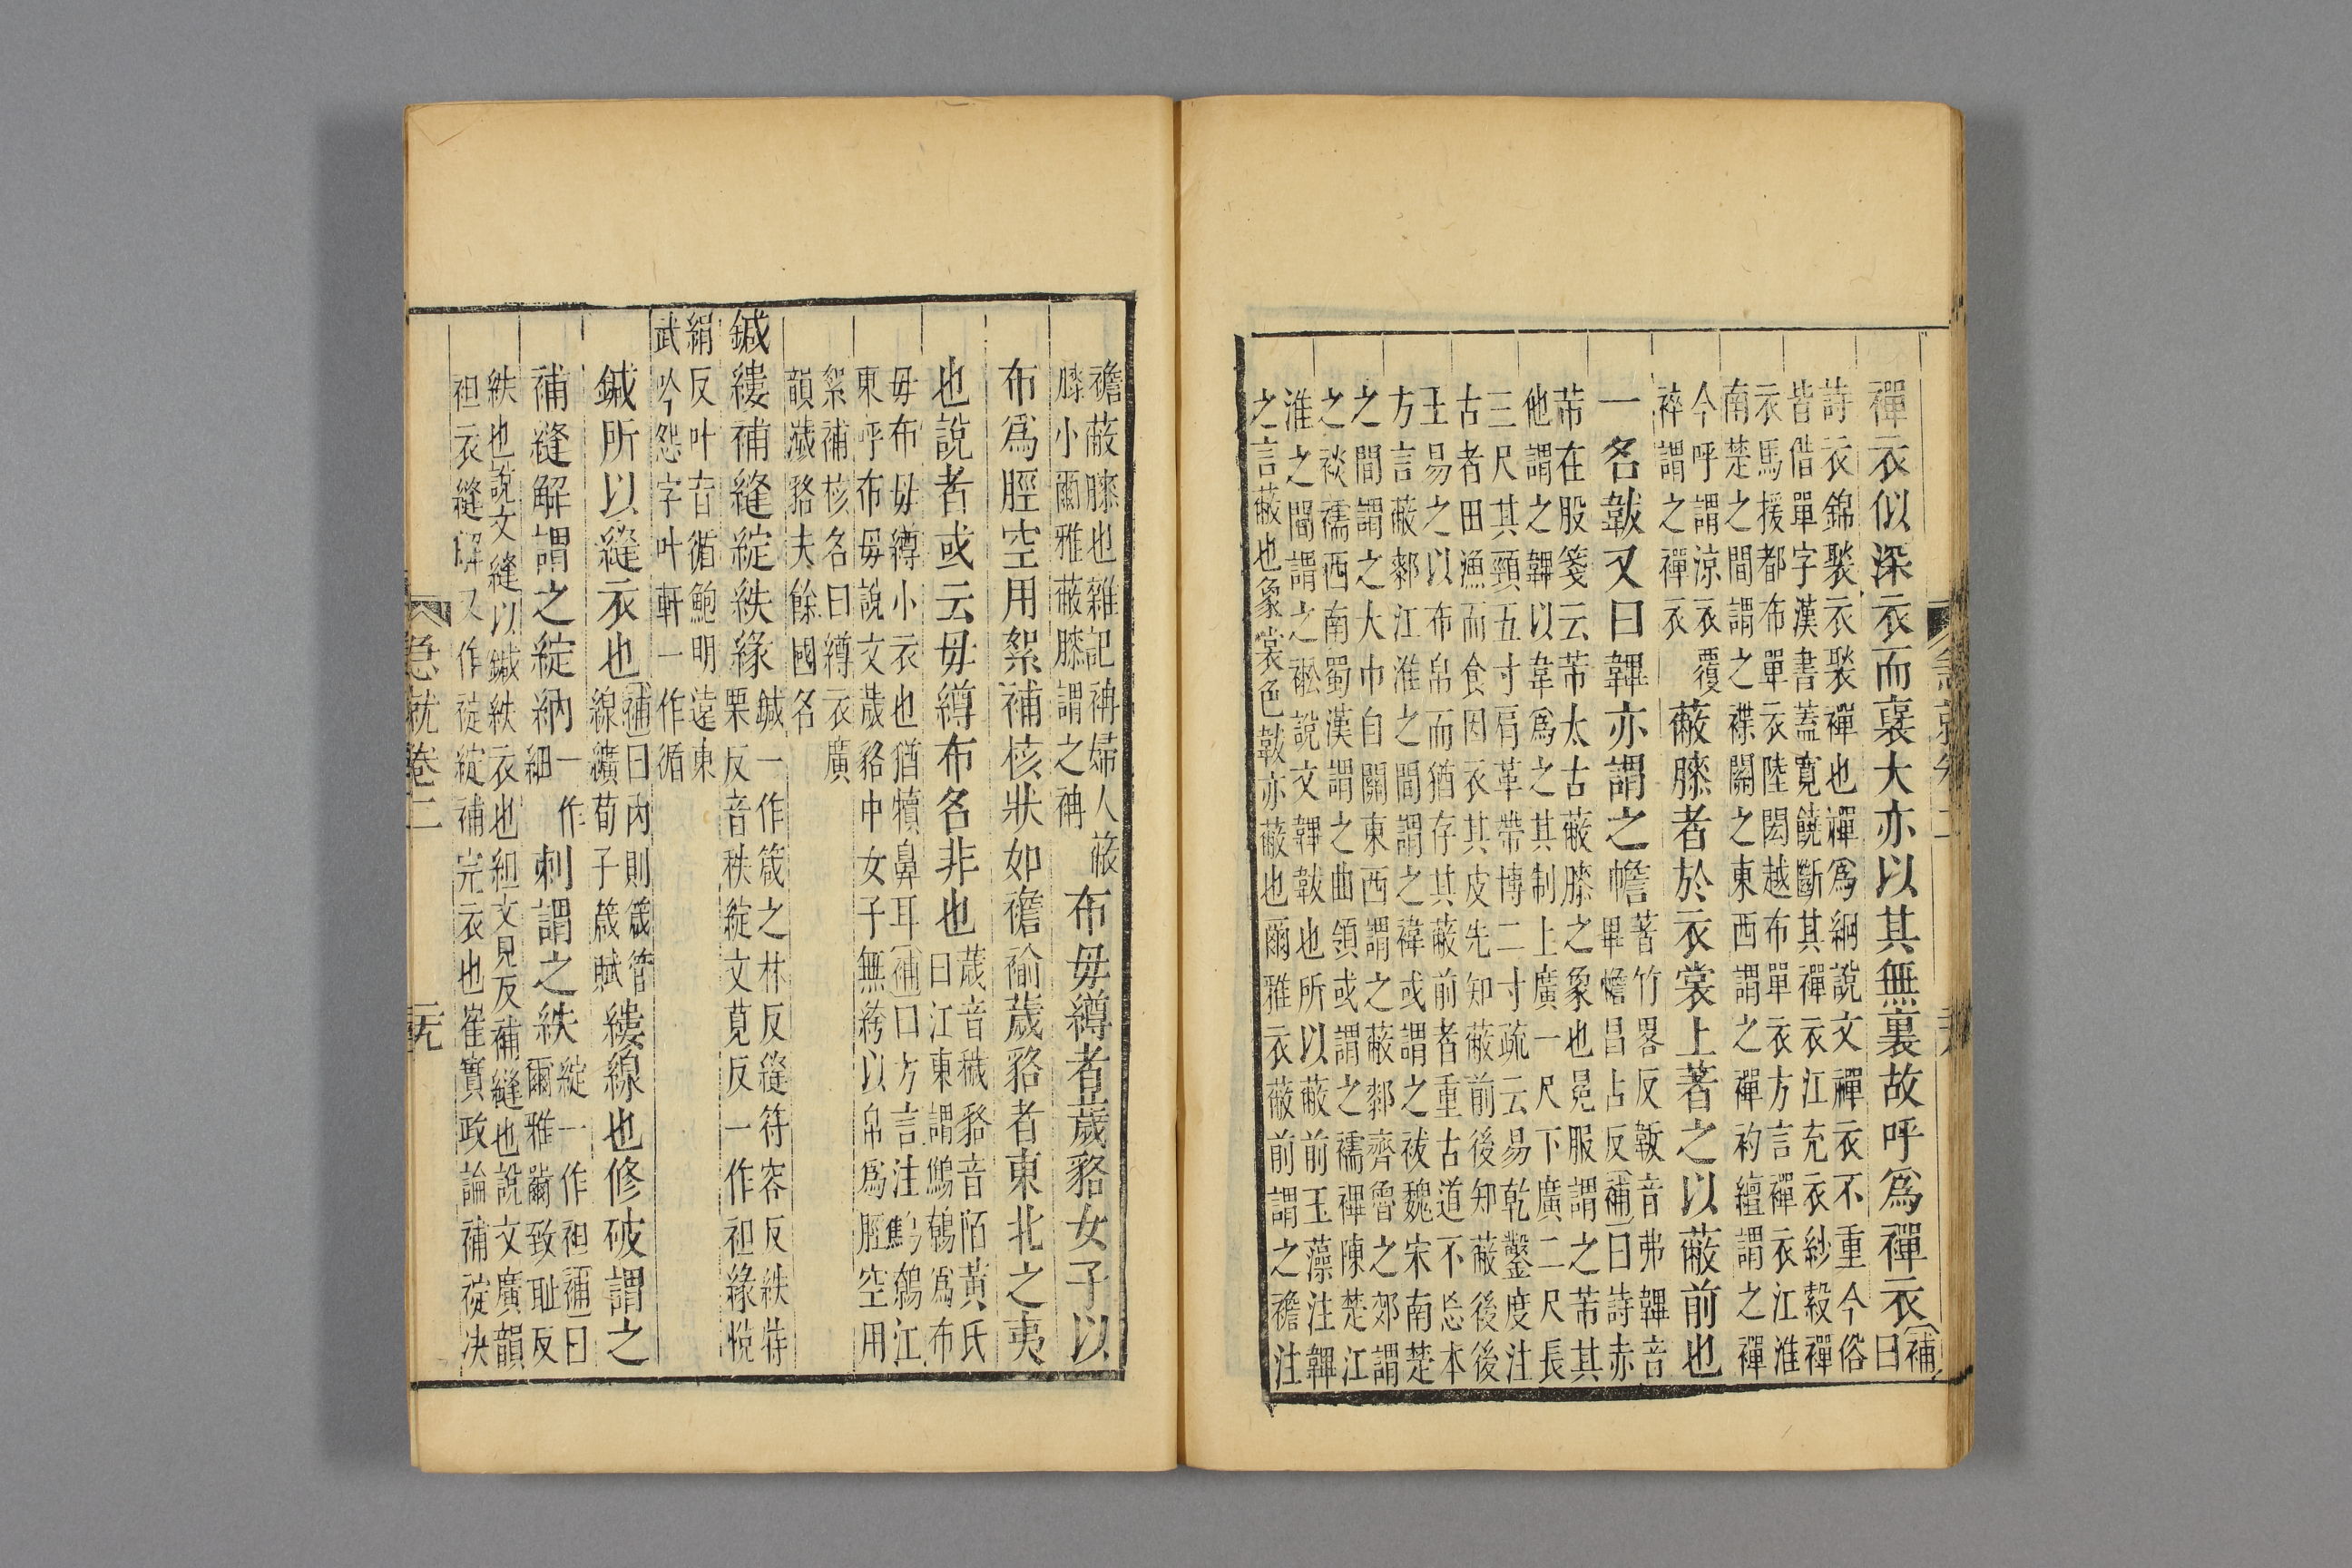 禪衣似深衣而裒大亦以其無裏故呼爲禪衣補曰
詩衣錦褧衣褧禪也禪爲絅說文禪衣不重今俗
皆借單字漢書蓋寛饒斷其禪衣江充衣紗縠禪
衣馬援都布單衣陸閎越布單衣方言禪衣江淮
南楚之間謂之褋關之東西謂之禪礿繵謂之禪
今呼謂涼衣覆
䘹謂之禪衣
蔽膝者於衣裳上著之以蔽前也
一名韍又曰韠亦謂之幨
著竹畧反韍音弗韠音
畢幨昌占反補曰詩赤
芾在股箋云芾太古蔽膝之象也冕服謂之芾其
他謂之韠以韋爲之其制上廣一尺下廣二尺長
三尺其頸五寸肩革帶博二寸疏云易乾鑿度注
古者田漁而食因衣其皮先知蔽前後知蔽後後
王易之以布帛而猶存其蔽前者重古道不忘本
方言蔽䣛江淮之間謂之褘或謂之袚魏宋南楚
之間謂之大巾自關東西謂之蔽䣛齊魯之郊謂
之袡襦西南蜀漢謂之曲領或謂之襦禪陳楚江
淮之間謂之䘴說文韠韍也所以蔽前玉藻注韠
之言蔽也象裳色韍亦蔽也爾雅衣蔽前謂之襜注
襜蔽膝也雜記袡婦人蔽
膝小爾雅蔽膝謂之袡
布毋繜者葳貉女子以
布爲脛空用絮補核狀如襜褕葳貉者東北之夷
也說者或云毋繜布名非也
葳音穢貉音陌黃氏
曰江東謂鷦鵴爲布
毋布毋繜小衣也猶犢鼻耳補曰方言注鷦鵴江
東呼布毋說文葳貉中女子無絝以帛爲脛空用
絮補核名曰繜衣廣
韻濊貉夫餘國名
鍼縷補縫綻紩緣
鍼一作箴之林反縫符容反紩特
栗反音秩綻文莧反一作袒緣悅
絹反叶音循鮑明遠東
武吟怨字叶軒一作循
鍼所以縫衣也
補曰内則箴管
線纊荀子箴賦
縷線也修破謂之
補縫解謂之綻納
一作
細
刺謂之紩
綻一作袒補曰
爾雅黹致耻反
紩也說文縫以鍼紩衣也組文見反補縫也說文廣韻
袒衣縫解又作䘺綻補完衣也崔寔政論補䘺決
急就卷二
元